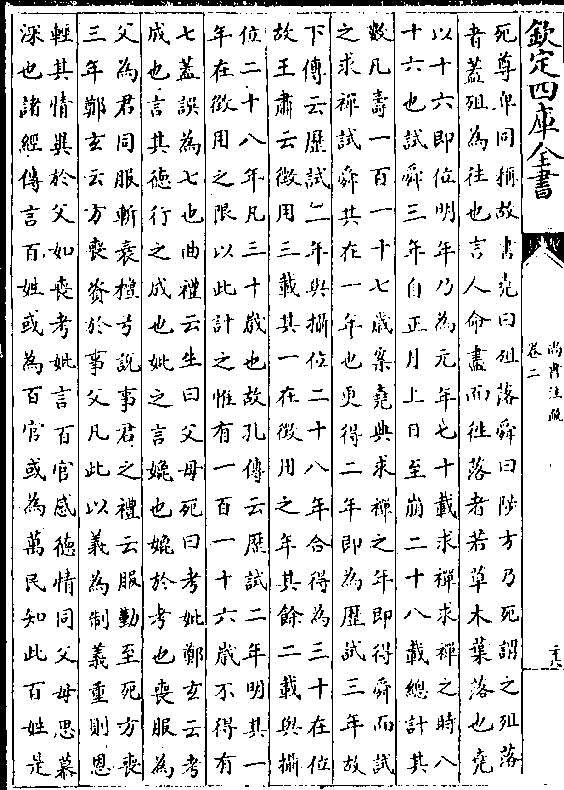 欽定四庫全書
尚書注疏
卷二
死尊卑同稱故書堯曰殂落舜曰陟方乃死謂之殂落
者蓋殂為往也言人命盡而徃落者若草木葉落也堯
以十六即位明年乃為元年七十載求禪求禪之時八
十六也試舜三年自正月上日至崩二十八載總計其
數凡壽一百一十七歲案堯典求禪之年即得舜而試
之求禪試舜共在一年也更得二年即為歷試三年故
下傳云歷試二年與攝位二十八年合得為三十在位
故王肅云徵用三載其一在徵用之年其餘二載與攝
位二十八年凡三十歲也故孔傳云歷試二年明其一
年在徵用之限以此計之惟有一百一十六歲不得有
七蓋誤為七也曲禮云生曰父母死曰考妣鄭玄云考
成也言其德行之成也妣之言媲也媲於考也喪服為
父為君同服斬衰檀弓說事君之禮云服勤至死方喪
三年鄭玄云方喪資於事父凡此以義為制義重則恩
輕其情異於父如喪考妣言百官感德情同父母思慕
深也諸經傳言百姓或為百官或為萬民知此百姓是